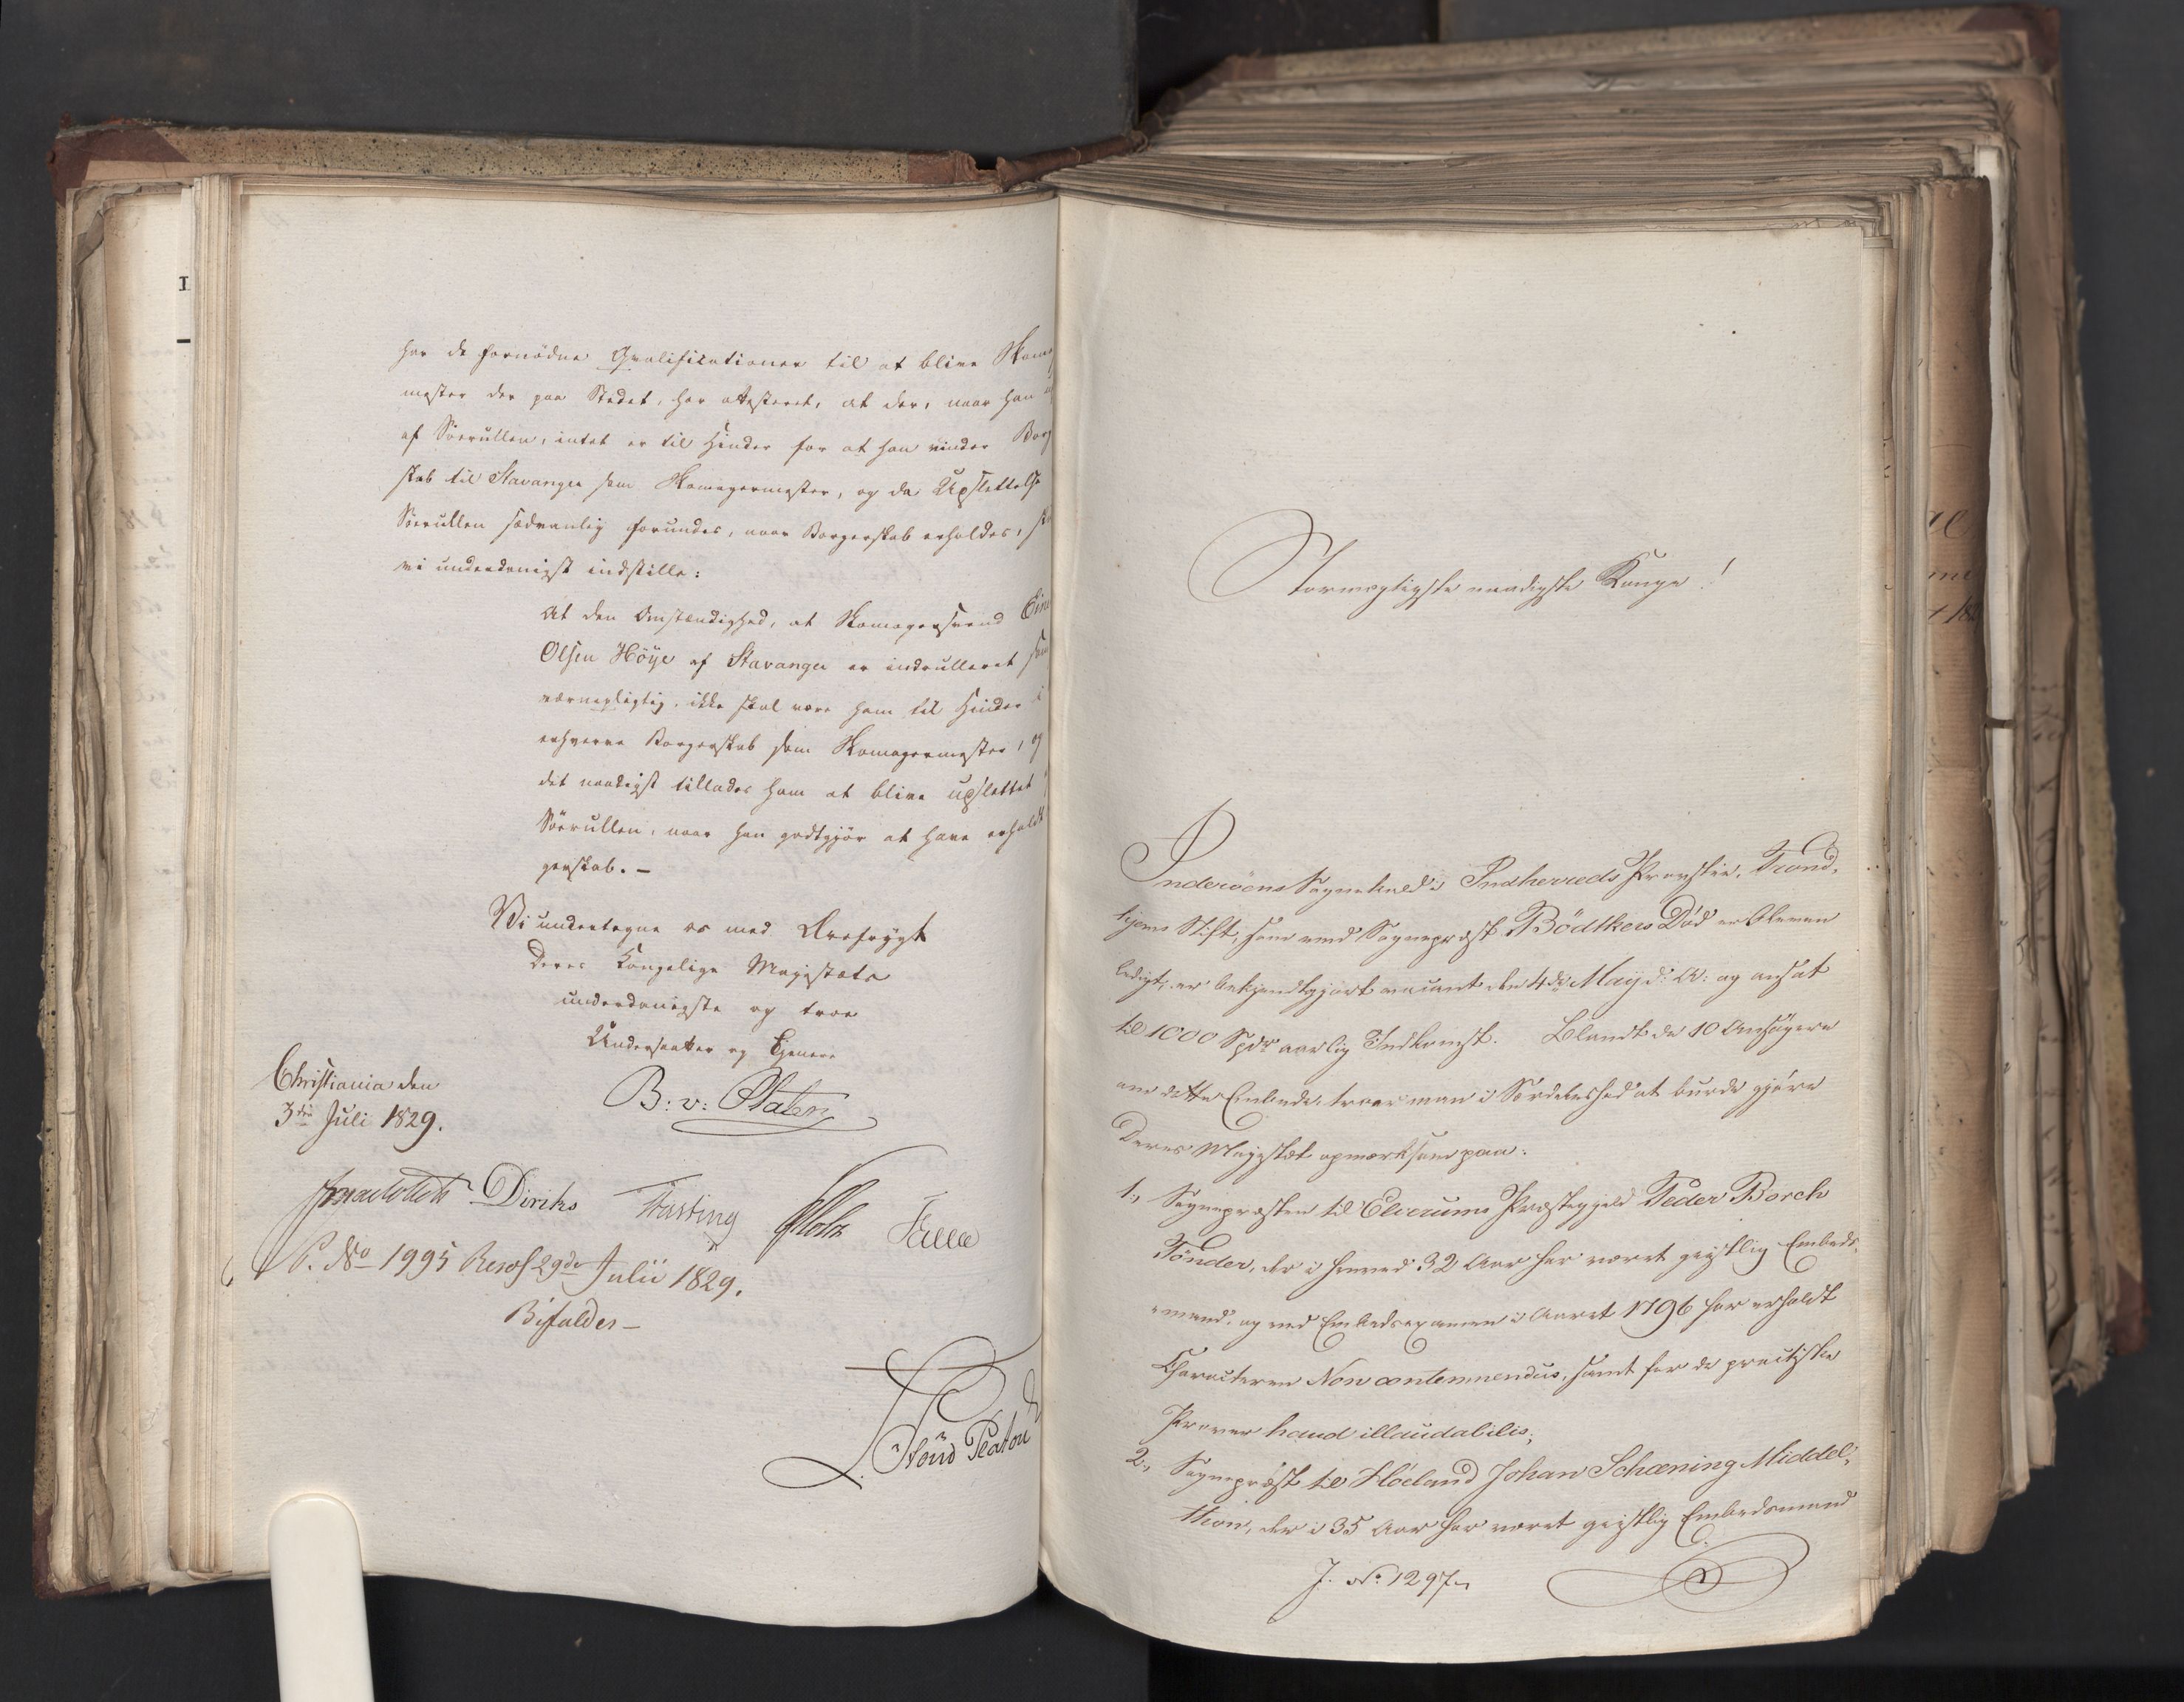 har de fornødne Qvalificationer til at blive Skoma
mester der paa Stedet, har attesteret, at der, naar han
af Söerullen, intet er til Hinder for at han vinder Borg
skab til Stavanger som Skomagermester, og da Udslettelse
Söerullen sædvanlig forundes, naar Borgerskab erholdes,
vi underdanigst indstille:
At den Omstændighed, at Skomagersvend
Olsen Höÿe af Stavanger er indrulleret som
værnepligtig, ikke skal være ham til Hinder i
erhverve Borgerskab som Skomagermester, og
det naadigst tillades ham at blive udslettet
Söerullen, naar han godtgjør at have erholdt
gerskab. –
Vi undertegne os med Ærefrygt
Deres Kongelige Majestæts
underdanigste og troe
Undersaatter og Tjenere
Christiania den
3die Juli 1829.
B: v: Platen
J Collett Diriks Fasting Holst
P. No 1995 Resol. 29de Julii 1829.
Bifaldes –
Stormægtigste naadigste Konge!
Inderöens Sognekald i Indherreds Provstie, Trond,
hjems Stift, som ved Sognepræst Bödtkers Død er bleven
ledigt, er bekjendtgjort vacant den 4de May d: A: og ansat
til 1000 Spdr aarlig Indkomst. Blandt de 10 Ansögere
om dette Embede, troer man i Særdeleshed at burde gjöre
Deres Majestæt opmærksom paa:
1., Sognepræsten til Elverums Præstegjeld Peder Borch
Tönder, der i henved 32 Aar har været geistlig Embeds-
mand, og ved Embedsexamen i Aaret 1796 har erholdt
Characteren Non contemnendus, samt for de practiske
Prøver haud illaudabilis;
2., Sognepræst til Höeland Johan Schæning Middel,
thon, der i 35 Aar har været geistlig Embedsmand
J. No. 1297